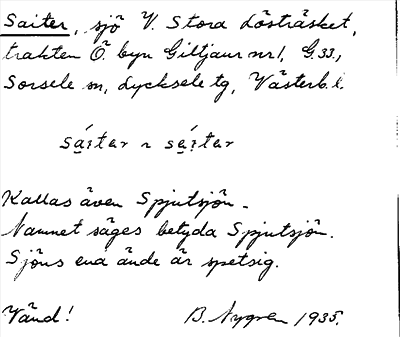 Saiter, sjö V. Stora Lösträsket,
trakten Ö. byn Giltjaur nr 1, G.33.,
Sorsele sn, Lycksele tg, Västerb. l.
Kallas även Spjutsjön.
Namnet säges betyda Spjutsjön.
Sjöns ena ände är spetsig.
Vänd! B. Nygren 1935.